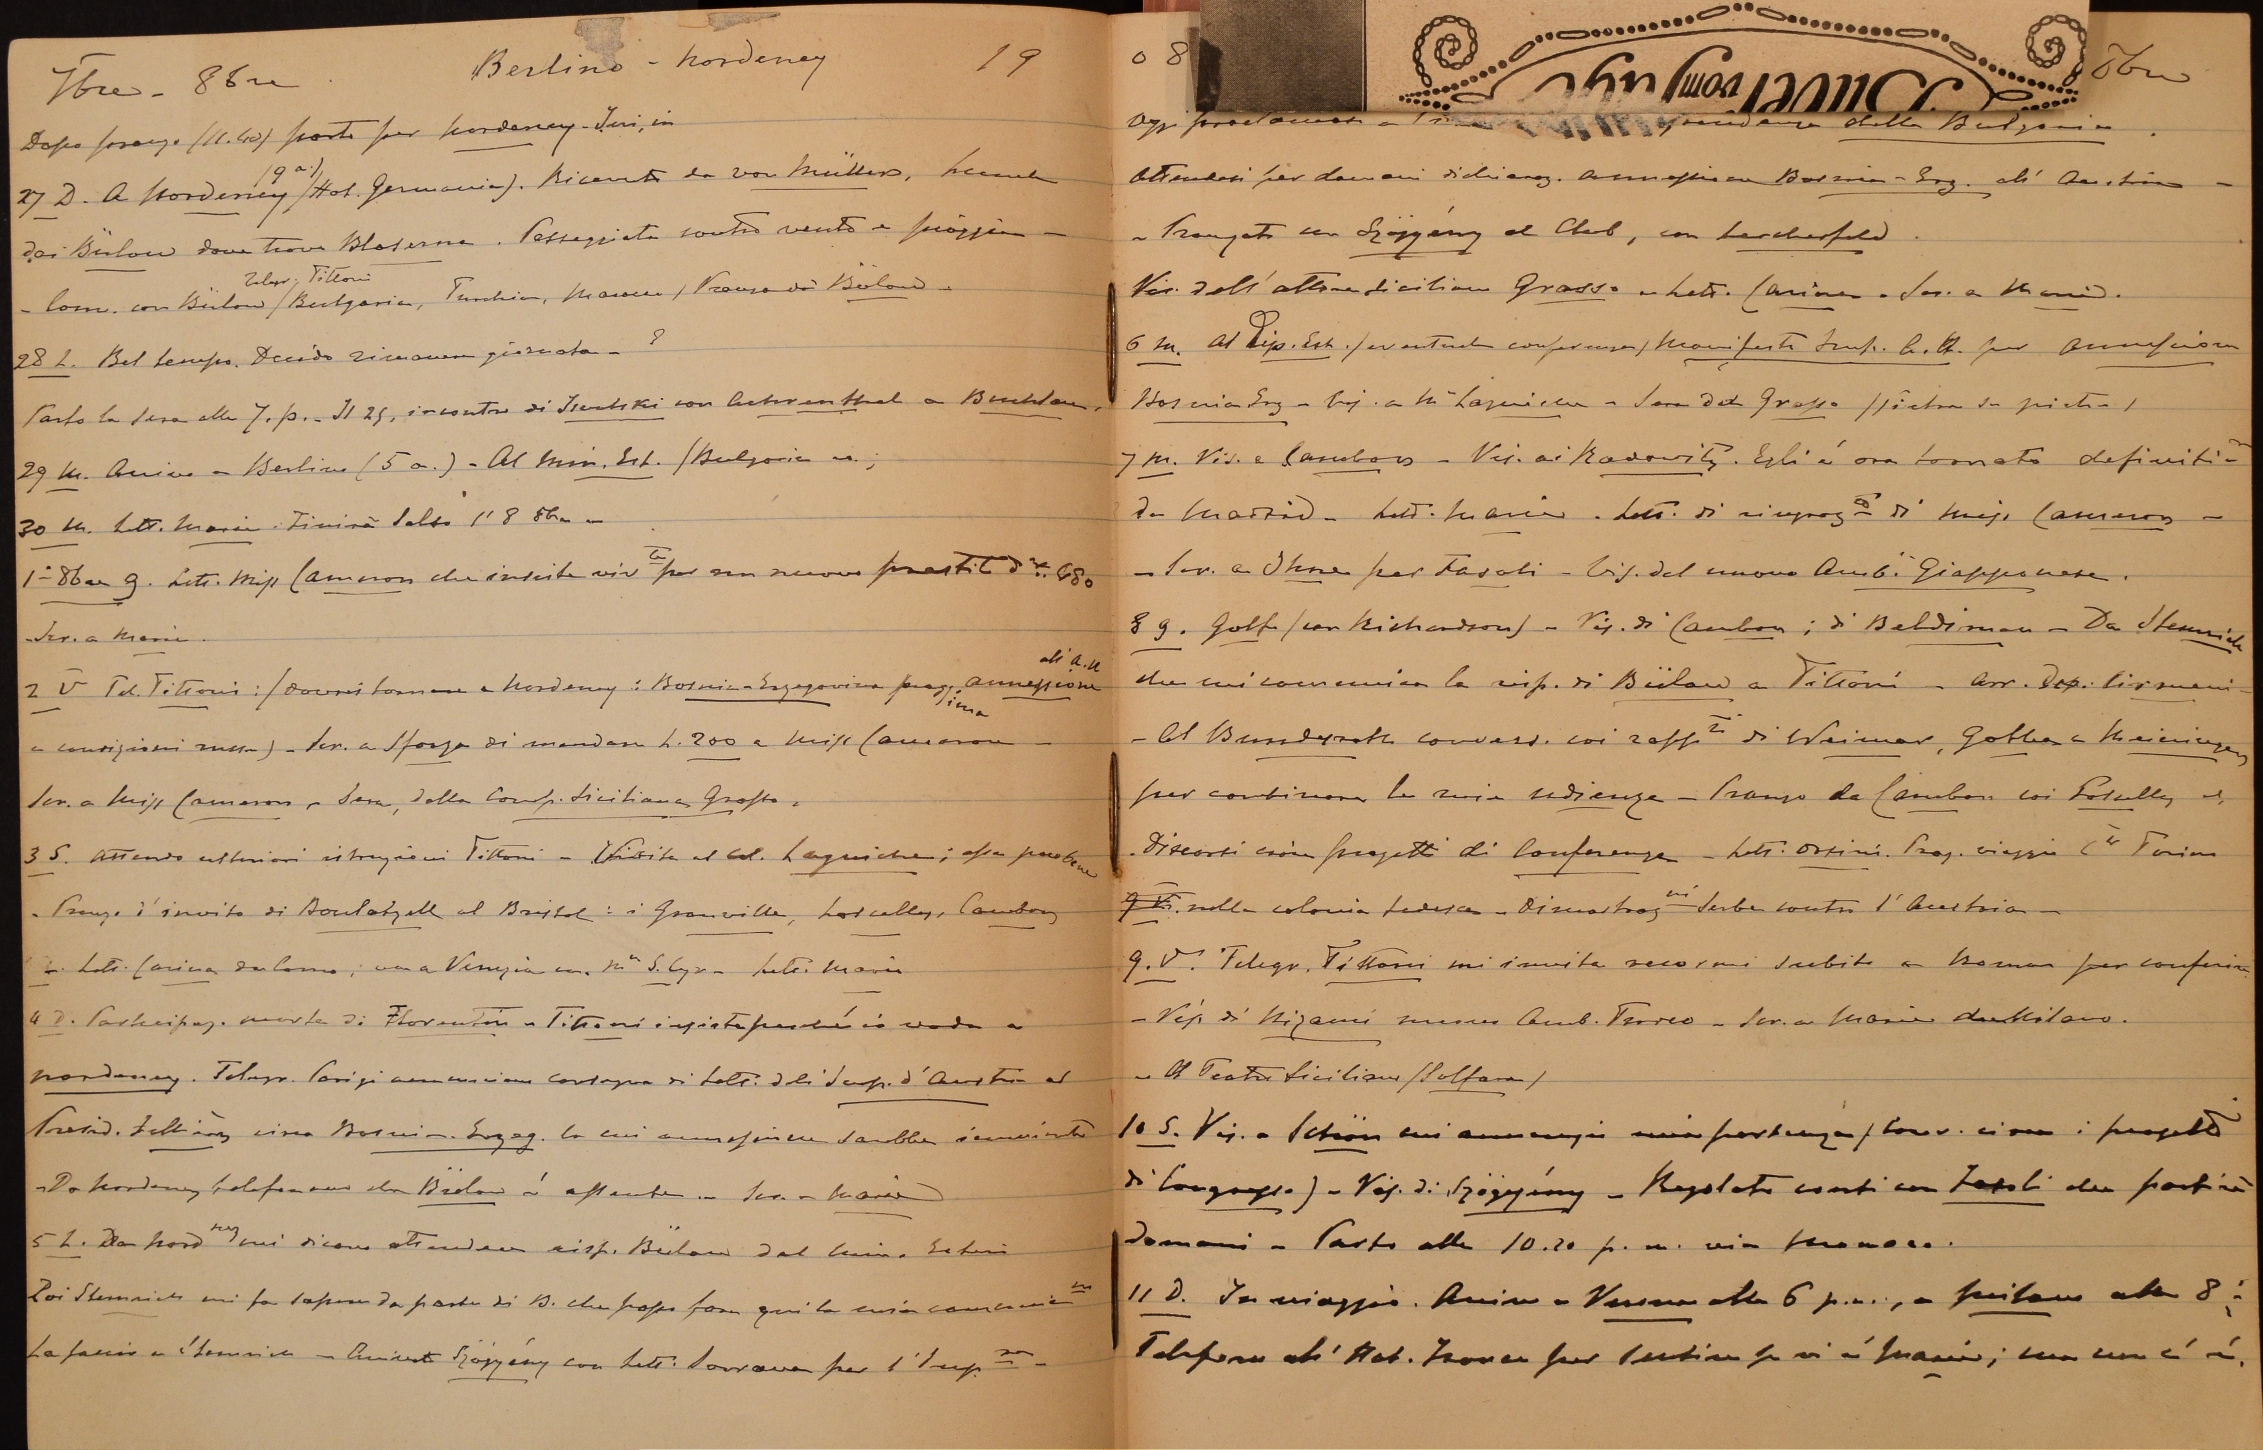 7bre - 8bre Berlino - Norderney 19
Dopo pranzo (11.40) parto per Norderney - Ieri, in
27 D. A Norderney (9 a.) (Hot. Germania). Ricevuto da von Müller,
dai Bülow dove trovo Blaserna. Passeggiata contro vento e pioggia -
- Conv. con Bülow (Telegr. Tittoni Bulgaria, Turchia, Marocco) Pranzo da Bülow -
28 L. Bel tempo. Decido rimanere giornata -
Parto la sera alle 7. p. - Il 25, incontro di Iswolski con Aehrenthal a Buchlau.
29 M. Arrivo a Berlino (5 a.) - Al Min. Est. (Bulgaria
30 M. Lett. Maria. Finirà Salso l'8 8bre -
1° 8bre G. Lett. Miss Cameron che insiste viv te per un nuovo prestito di 480
- Scr. a Maria.
2 V Tel. Tittoni: (dovrei tornare a Norderney: Bosnia-Erzegovina pross. ima annessione all' A.U
a condizioni russe) - Scr. a Sforza di mandare L. 200 a Miss Cameron -
Scr. a Miss Cameron - Sera, della Comp. Siciliana Grasso.
3 S. Attendo ulteriori istruzioni Tittoni - Visita al col. Laguiche;
- Pranzo d'invito di Boulatzell al Bristol: i Granville, Lascelles, Cambon
Lett. Carina da Como; va a Venezia M S. Cyr - Lett. Maria
4 D. Partecipaz. morte di Florentin - Tittoni insiste perché io vada a
Norderney. Telegr. Parigi annunciano consegna di lett. dell'Imp. d'Austria al
Presid. Fallières circa Bosnia-Erzeg. la cui annessione sarebbe imminente
- Da Norderney telefonano che Bülow è assente - Scr. a Maria
5 L. Da Nord ney mi dicono attendere risp. Bülow dal Min. Esteri
Poi Stemrich mi fa sapere da parte di B. che posso fare qui la mia comunicaz ne
La faccio a Stemrich - Szögyény con lett. Sovrano per l'Imp. re -
08 8bre
oggi proclamata dell Bulgaria.
Attendesi per domani dichiaraz. annessione Bosnia-Erz. all'Austria -
- Pranzato con Szögyény al Club, con Lerchenfeld.
Vis. dell'attore siciliano Grasso - Lett. Carina - Scr. a Maria.
6 M. Al Dip. Est. (eventuale conferenza) Manifesto Imp. A.U. per annessione
Bosnia Erz - Vis. a M Laguiche - Sera dal Grasso (pietra su pietra)
7 M. Vis. a Cambon - Vis. ai Radowitz. Egli è ora tornato definitiv te
da Madrid - Lett. Maria - Lett. di ringraz di Miss Cameron -
- Scr. a Ihne per Fasoli - Vis. del nuovo Amb. Giapponese.
8 G. Golf (con Richardson) - Vis. di Cambon; di Beldiman - Da Stemrich
che mi comunica la risp. di Bülow a Tittoni - Arr. Dep. Cirmeni -
- Al Bundesrath convers. coi rapp ti di Weimar, Gotha e Meiningen
per combinare la mia udienza - Pranzo da Cambon coi Lascelles
- Discorsi circa progetti di Conferenza - Lett. Orsini. Prog. viaggio C Torino
nella colonia tedesca - Dimostraz ni Serbe contro l'Austria -
9. V. Telegr. Tittoni mi invita recarmi subito a Roma per conferire
- Vis. di Nizami nuovo Amb. Turco - Scr. a Maria da Milano.
- Al Teatro Siciliano (Solfara)
10 S. Vis. a Schön cui annunzio mia partenza (Conv. circa i progetti
di Congresso) - Vis. di Szögyény - Regolato conti con Fasoli che partirà
domani - Parto alle 10.20 p. m. via Monaco.
11 D. In viaggio. Arrivo a Verona alle 6 p.m., a Milano alle 8
Telefono all'Hot. per sentire se vi è Maria; ma non c'è.